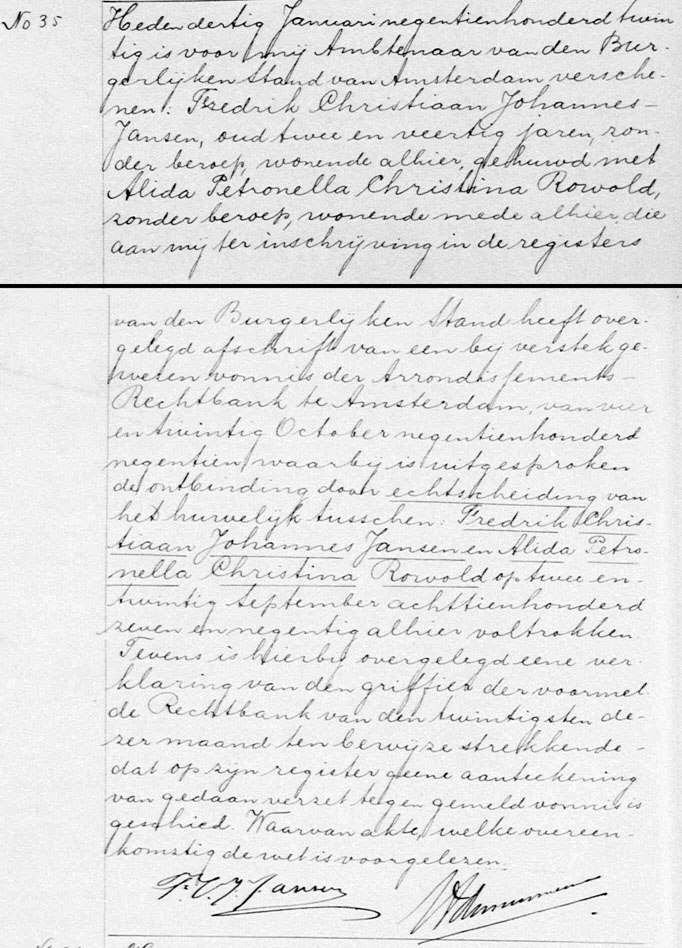 No 35
Heden dertig Januari negentienhonderd twin
tig is voor mij Ambtenaar van den Bur-
gerlijken Stand van Amsterdam versche-
nen: Fredrik Christiaan Johannes-
Jansen, oud twee en veertig jaren, zon-
der beroep, wonende alhier, gehuwd met
Alida Petronella Christina Rowold,
zonder beroep, wonende mede alhier, die
aan mij ter inschrijving in de registers
van den Burgerlijken Stand heeft over-
gelegd afschrift van een bij verstek ge-
wezen vonnis der Arrondissements-
Rechtbank te Amsterdam, van vier
en twintig October negentienhonderd
negentien, waarbij is uitgesproken
de ontbinding door echtscheiding van
het huwelijk tusschen: Fredrik Chris-
tiaan Johannes Jansen en Alida Petro-
nella Christina Rowold op twee en-
twintig September achttienhonderd
zeven en negentig alhier voltrokken.
Tevens is hierbij overgelegd eene ver-
klaring van den griffier der voormel-
de Rechtbank van den twintigsten de-
zer maand ten bewijze strekkende-
dat op zijn register geene aanteekening
van gedaan verzet tegen gemeld vonnis is
geschied. Waarvan akte, welke overeen-
komstig de wet is voorgelezen.
F. C. J. Jansen